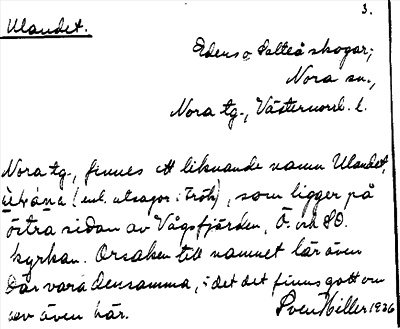 3.
Ulandet.
Edens o. Salteå skogar,
Nora sn.,
Nora tg., Västernorrl. l.
Nora tg., finnes ett liknande namn Ulandet,
(enl. utsagor i Trök), som ligger på
östra sidan av Vågsfjärden, Ö. om SO.
kyrkan. Orsaken till namnet lär även
där vara densamma, i det det finns gott om
uv även här. Sven Hiller 1926